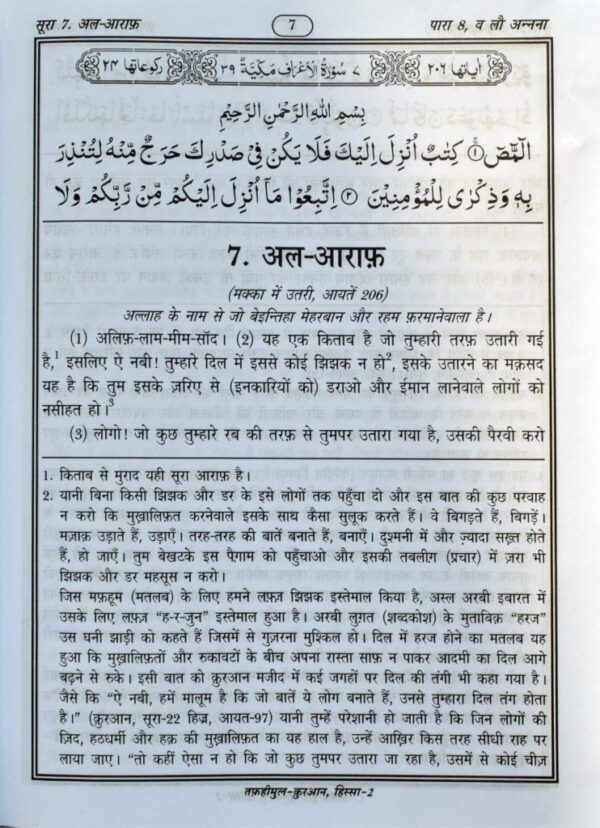 सूरा 7. अल-आराफ़ 7 पारा 8, व लौ अन्नना
اٰیاتھا ٢٠٦ ٧ سُوْرَةُ الْاَعْرَافِ مَكِّيَّةٌ ٣٩ رکوعاتھا ٢٤
بِسْمِ اللهِ الرَّحْمٰنِ الرَّحِيْمِ
الٓمّٓصٓ ١ كِتٰبٌ اُنْزِلَ اِلَيْكَ فَلَا يَكُنْ فِيْ صَدْرِكَ حَرَجٌ مِّنْهُ لِتُنْذِرَ
بِهٖ وَذِكْرٰى لِلْمُؤْمِنِيْنَ ٢ اِتَّبِعُوْا مَآ اُنْزِلَ اِلَيْكُمْ مِّنْ رَّبِّكُمْ وَلَا
7. अल-आराफ़
(मक्का में उतरी, आयतें 206)
अल्लाह के नाम से जो बेइन्तिहा मेहरबान और रहम फ़रमानेवाला है।
(1) अलिफ़-लाम-मीम-सॉद। (2) यह एक किताब है जो तुम्हारी तरफ़ उतारी गई
है,1 इसलिए ऐ नबी! तुम्हारे दिल में इससे कोई झिझक न हो2, इसके उतारने का मक़सद
यह है कि तुम इसके ज़रिए से (इनकारियों को) डराओ और ईमान लानेवाले लोगों को
नसीहत हो।3
(3) लोगो! जो कुछ तुम्हारे रब की तरफ़ से तुमपर उतारा गया है, उसकी पैरवी करो
1. किताब से मुराद यही सूरा आराफ़ है।
2. यानी बिना किसी झिझक और डर के इसे लोगों तक पहुँचा दो और इस बात की कुछ परवाह
न करो कि मुख़ालिफ़त करनेवाले इसके साथ कैसा सुलूक करते हैं। वे बिगड़ते हैं, बिगड़ें।
मज़ाक़ उड़ाते हैं, उड़ाएँ। तरह-तरह की बातें बनाते हैं, बनाएँ। दुश्मनी में और ज़्यादा सख़्त होते
हैं, हो जाएँ। तुम बेखटके इस पैग़ाम को पहुँचाओ और इसकी तबलीग़ (प्रचार) में ज़रा भी
झिझक और डर महसूस न करो।
जिस मफ़हूम (मतलब) के लिए हमने लफ़्ज़ झिझक इस्तेमाल किया है, अस्ल अरबी इबारत में
उसके लिए लफ़्ज़ “ह-र-जुन” इस्तेमाल हुआ है। अरबी लुग़त (शब्दकोश) के मुताबिक़ “हरज”
उस घनी झाड़ी को कहते हैं जिसमें से गुज़रना मुश्किल हो। दिल में हरज होने का मतलब यह
हुआ कि मुख़ालिफ़तों और रुकावटों के बीच अपना रास्ता साफ़ न पाकर आदमी का दिल आगे
बढ़ने से रुके। इसी बात को क़ुरआन मजीद में कई जगहों पर दिल की तंगी भी कहा गया है।
जैसे कि “ऐ नबी, हमें मालूम है कि जो बातें ये लोग बनाते हैं, उनसे तुम्हारा दिल तंग होता
है।” (क़ुरआन, सूरा-22 हिज्र, आयत-97) यानी तुम्हें परेशानी हो जाती है कि जिन लोगों की
ज़िद, हठधर्मी और हक़ की मुख़ालिफ़त का यह हाल है, उन्हें आख़िर किस तरह सीधी राह पर
लाया जाए। “तो कहीं ऐसा न हो कि जो कुछ तुमपर उतारा जा रहा है, उसमें से कोई चीज़
तफ़हीमुल-क़ुरआन, हिस्सा-2